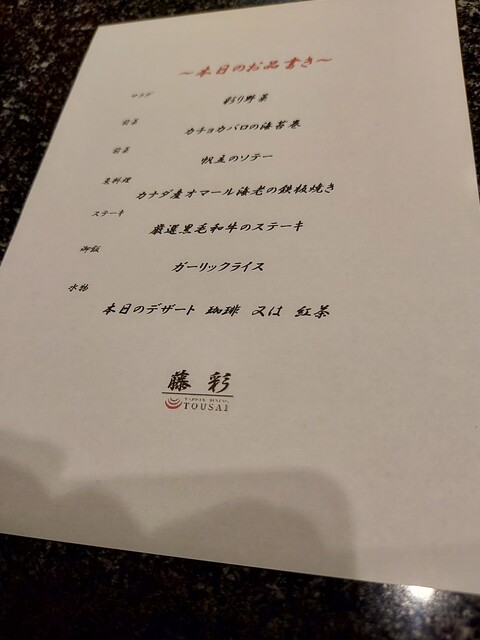 ～本日のお品書き～
サラダ
彩り野菜
前菜
カチョカバロの海苔巻
前菜
帆立のソテー
主料理
カナダ産オマール海老の鉄板焼き
ステーキ
厳選黒毛和牛のステーキ
御飯
ガーリックライス
水物
本日のデザート 珈琲 又は 紅茶
藤 彩
TOUSAI